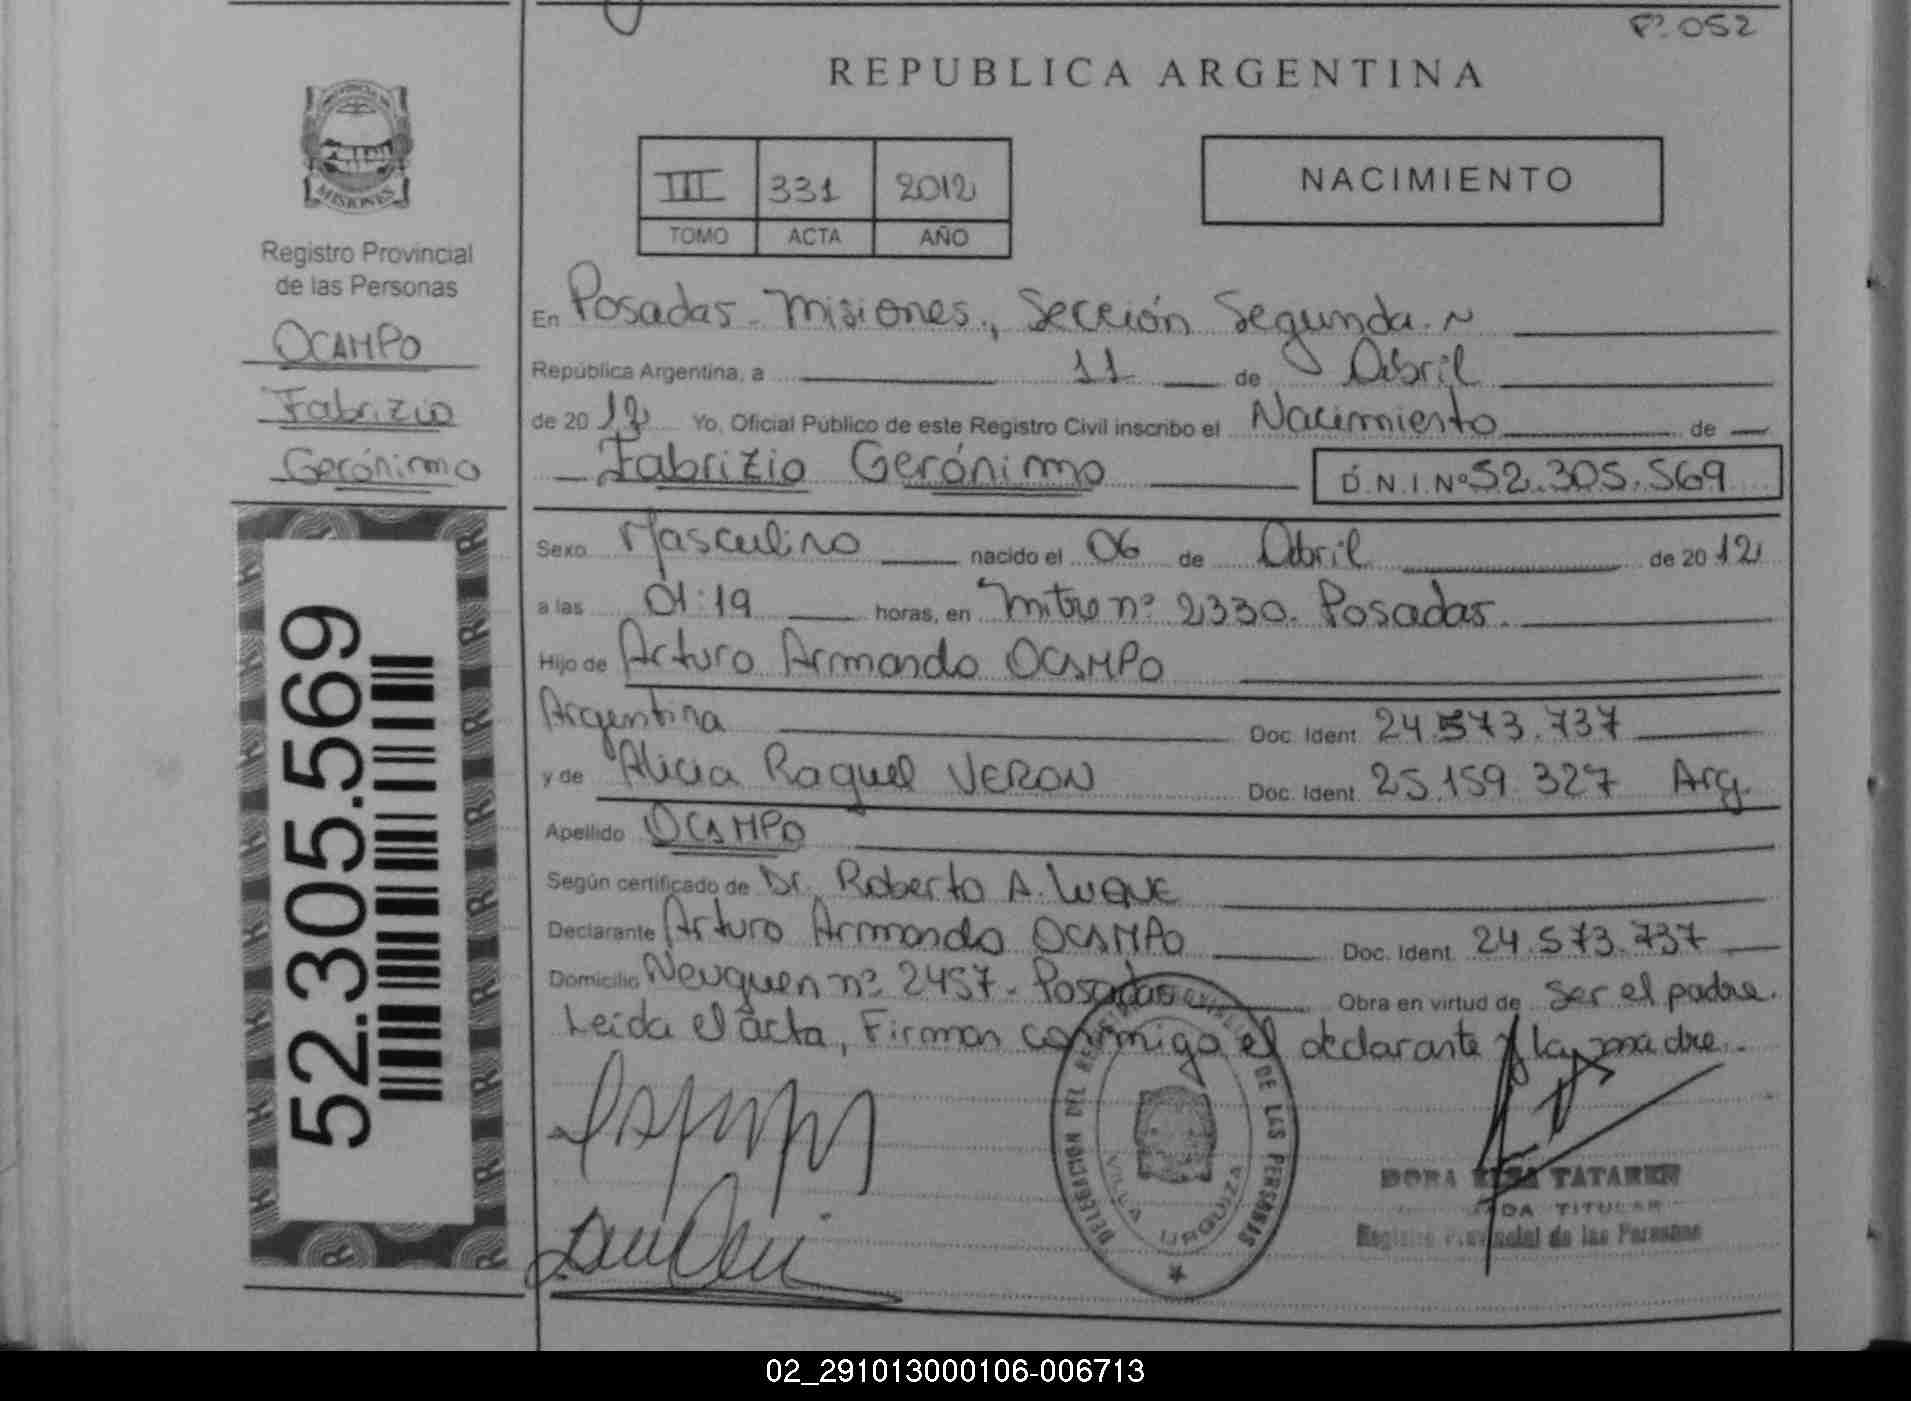 Fº 052
REPUBLICA ARGENTINA
PROVINCIA DE
MISIONES
Registro Provincial
de las Personas
OCAMPO
Fabrizio
Gerónimo
52.305.569
III 331 2012
TOMO ACTA AÑO
NACIMIENTO
En Posadas - Misiones, Sección Segunda. ~
República Argentina, a 11 de Abril
de 2012 Yo, Oficial Público de este Registro Civil inscribo el Nacimiento de
Fabrizio Gerónimo D.N.I. Nº 52.305.569
Sexo Masculino nacido el 06 de Abril de 2012
a las 01:19 horas, en Mitre nº 2330. Posadas.
Hijo de Arturo Armando OCAMPO
Argentina Doc. Ident. 24.573.737
y de Alicia Raquel VERON Doc. Ident. 25.159.327 Arg.
Apellido OCAMPO
Según certificado de Dr. Roberto A. LUQUE
Declarante Arturo Armando OCAMPO Doc. Ident. 24.573.737
Domicilio Neuquen nº 2457 - Posadas Obra en virtud de ser el padre.
Leida el acta, Firman conmigo el declarante y la madre.
DELEGACION DEL REGISTRO DE LAS PERSONAS
VILLA URQUIZA
DORA TATAREN
TITULAR
Registro Provincial de las Personas
02_291013000106-006713